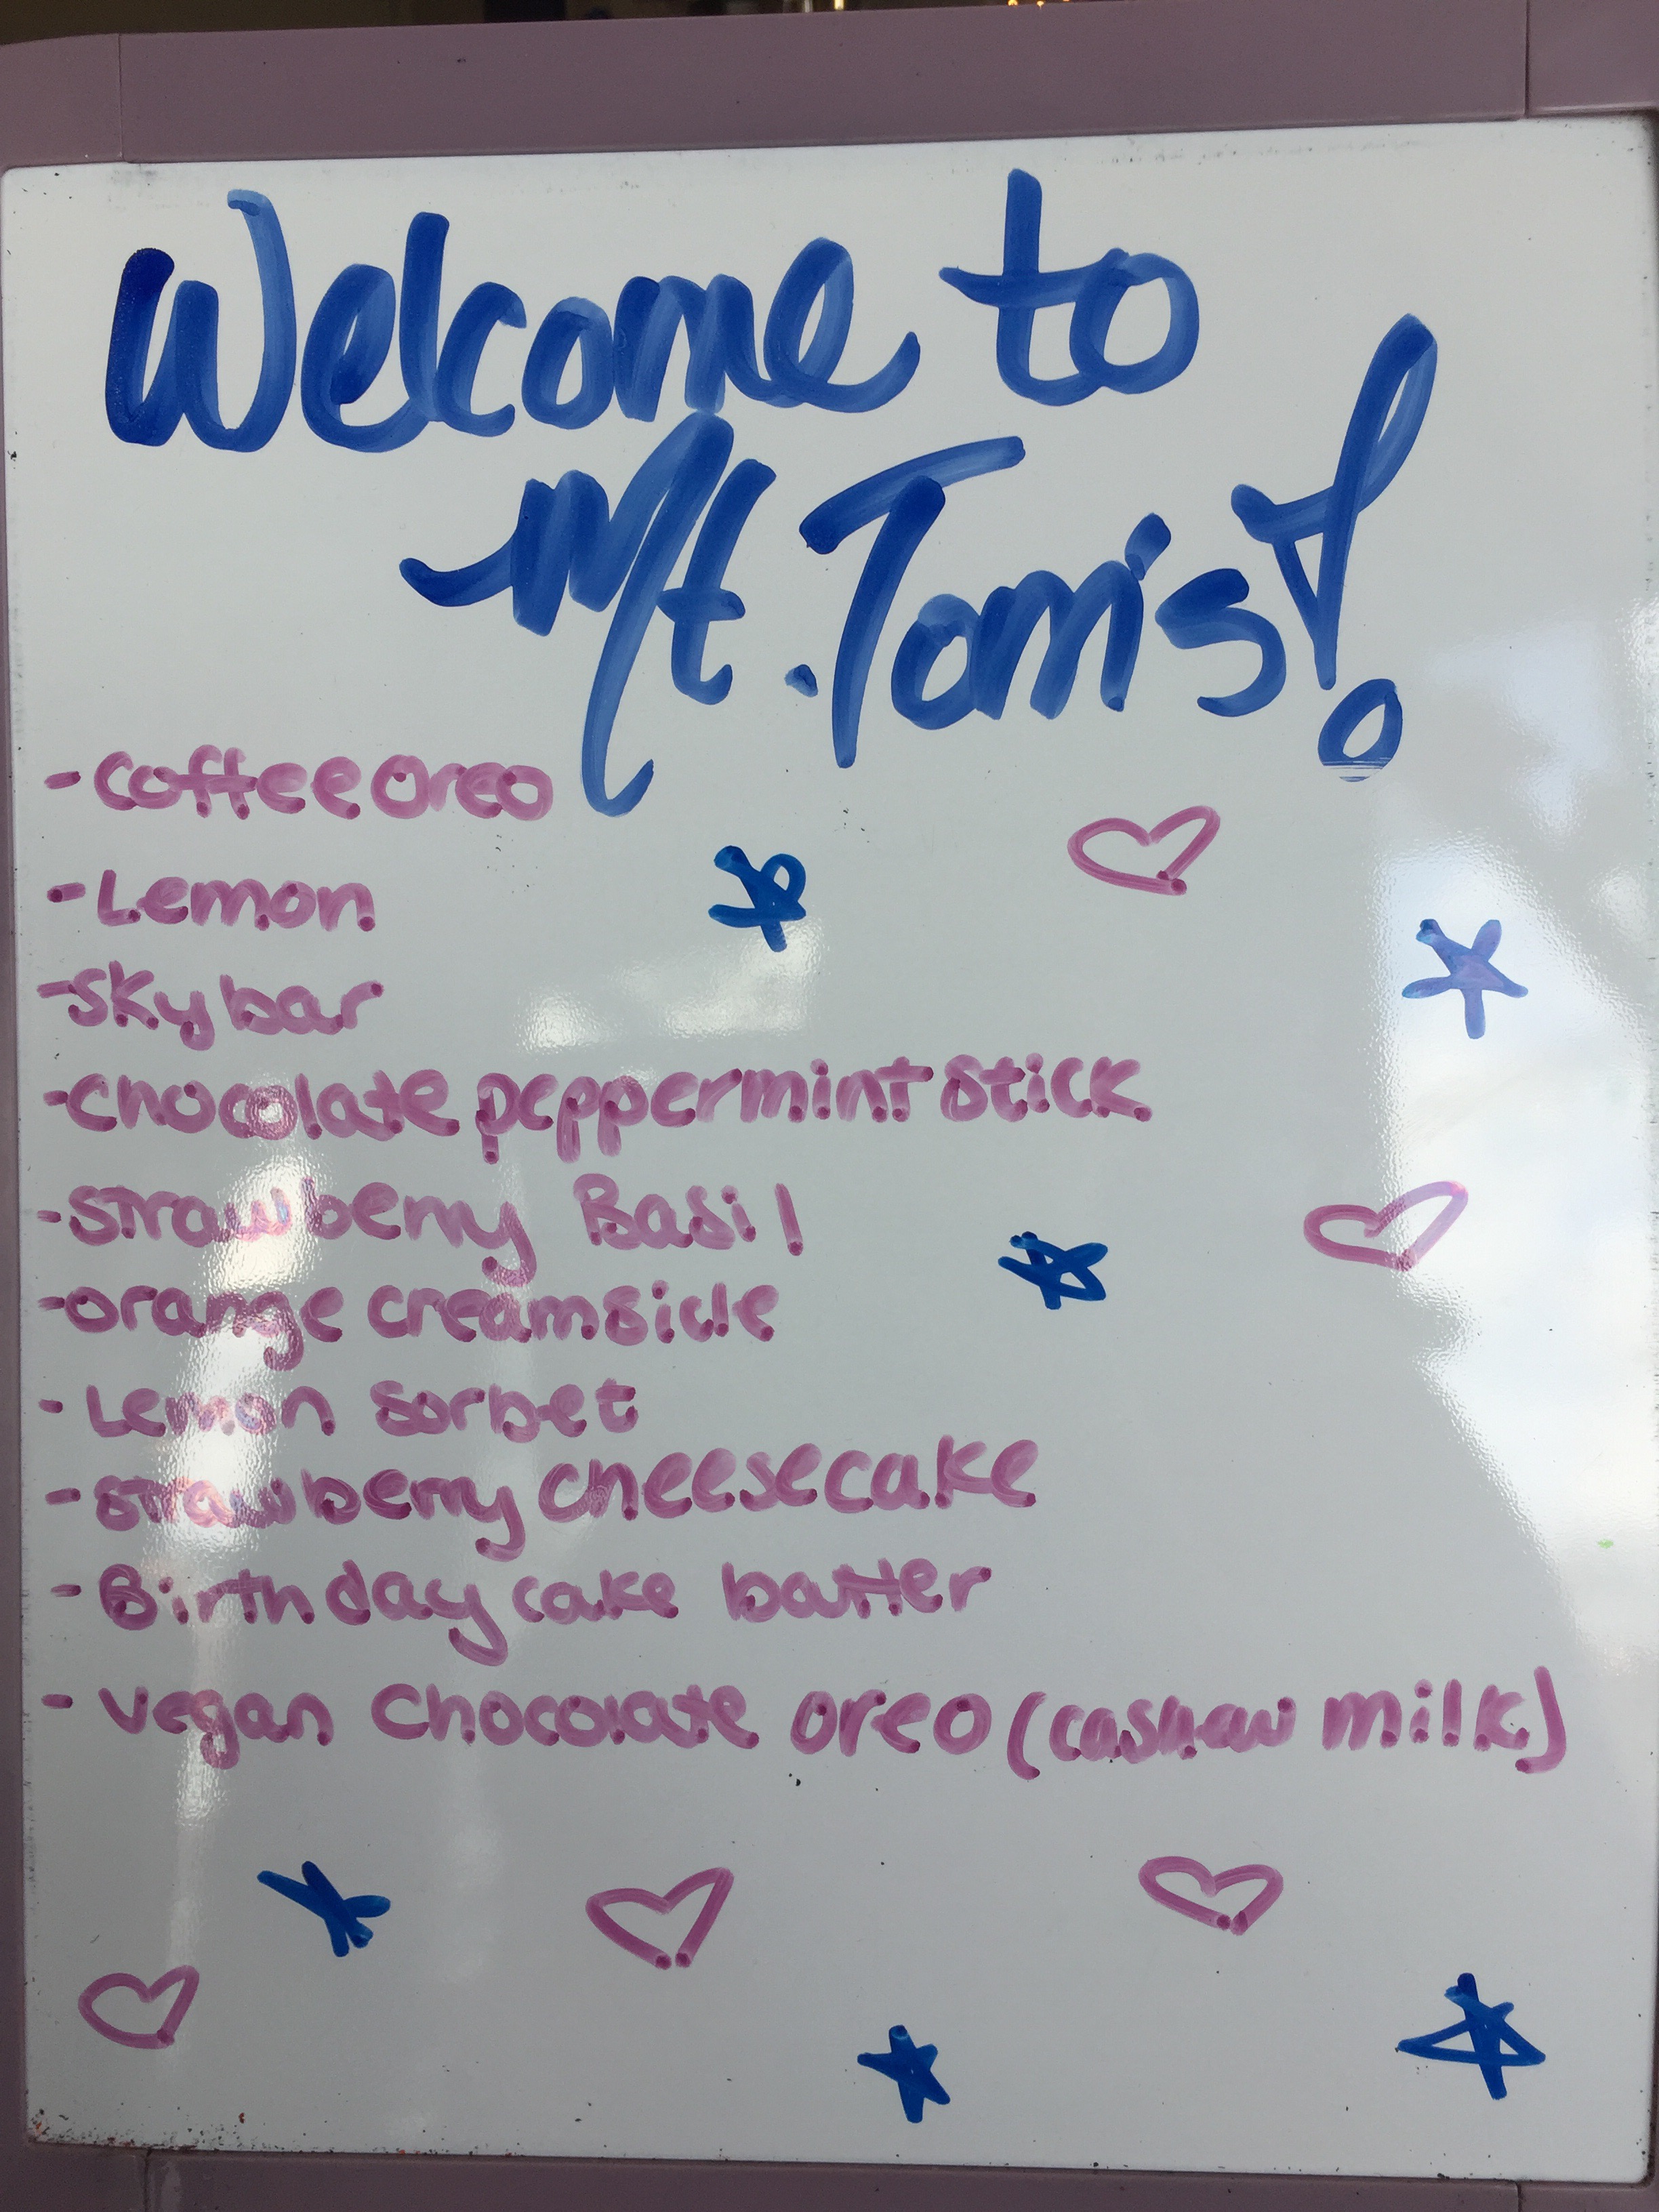 Welcome to
Mt. Tom's!
- Coffee Oreo
- Lemon
- Skybar
- Chocolate peppermint stick
- Strawberry Basil
- Orange creamsicle
- Lemon Sorbet
- Strawberry Cheesecake
- Birthday cake batter
- Vegan Chocolate Oreo (cashew milk)